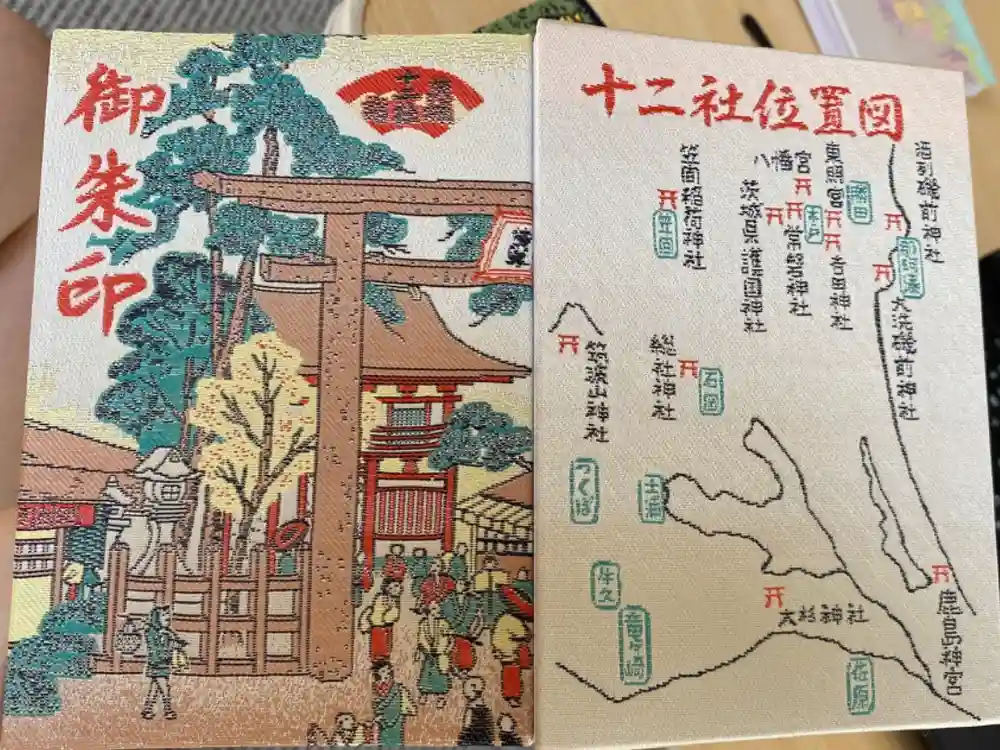 御朱印
十二社位置図
酒列磯前神社
那珂湊
大洗磯前神社
勝田
東照宮
吉田神社
八幡宮
水戸
常磐神社
茨城県護国神社
笠間稲荷神社
笠間
筑波山神社
石岡
つくば
土浦
牛久
竜ヶ崎
大杉神社
佐原
鹿島神宮